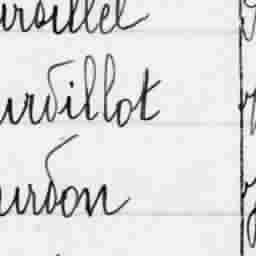 urdillel
urdillot
urdon